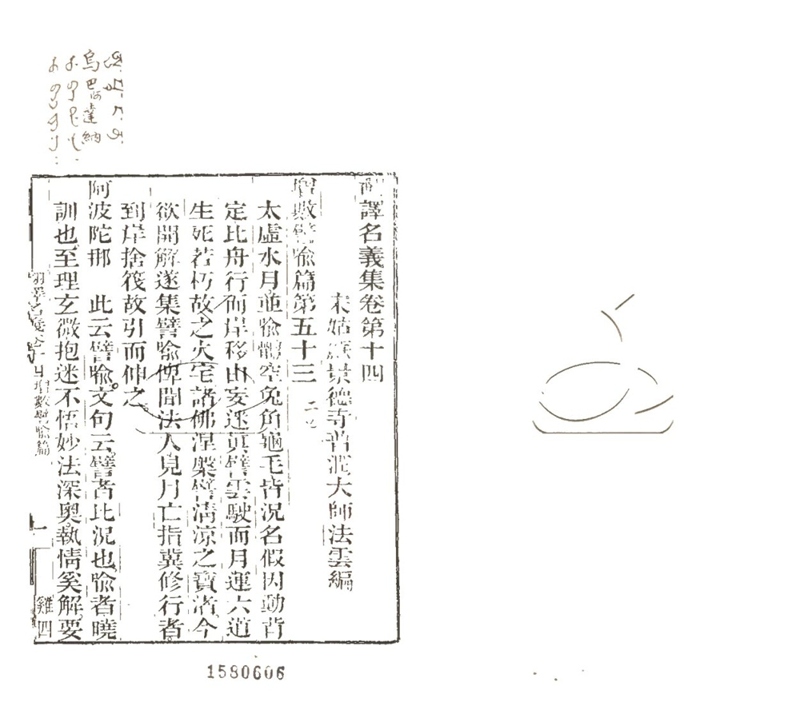 烏巴達納
翻譯名義集卷第十四
宋姑蘇景德寺普潤大師法雲編
增數譬喻篇第五十三
太虛水月並喻體空兔角龜毛皆況名假因動背
定比舟行而岸移由妄迷真譬雲駛而月運六道
生死若朽故之火宅諸佛涅槃譬清涼之寶渚今
欲開解遂集譬喻俾聞法人見月亡指冀修行者
到岸捨筏故引而伸之
阿波陀那 此云譬喻文句云譬者比況也喻者曉
訓也至理玄微抱迷不悟妙法深奧執情奚解要
翻譯名義卷十四增數譬喻篇
一
雞四
1580606